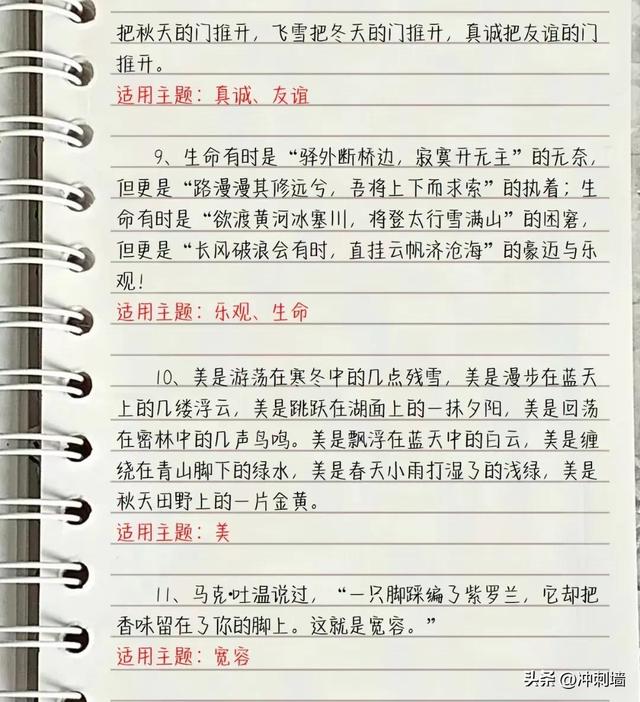 把秋天的门推开，飞雪把冬天的门推开，真诚把友谊的门
推开。
适用主题：真诚、友谊
9、生命有时是“驿外断桥边，寂寞开无主”的无奈，
但更是“路漫漫其修远兮，吾将上下而求索”的执着；生
命有时是“欲渡黄河冰塞川，将登太行雪满山”的困窘，
但更是“长风破浪会有时，直挂云帆济沧海”的豪迈与乐
观！
适用主题：乐观、生命
10、美是游荡在寒冬中的几点残雪，美是漫步在蓝天
上的几缕浮云，美是跳跃在湖面上的一抹夕阳，美是回荡
在密林中的几声鸟鸣。美是飘浮在蓝天中的白云，美是缠
绕在青山脚下的绿水，美是春天小雨打湿了的浅绿，美是
秋天田野上的一片金黄。
适用主题：美
11、马克·吐温说过，“一只脚踩编了紫罗兰，它却把
香味留在了你的脚上。这就是宽容。”
适用主题：宽容
头条 @冲刺墙